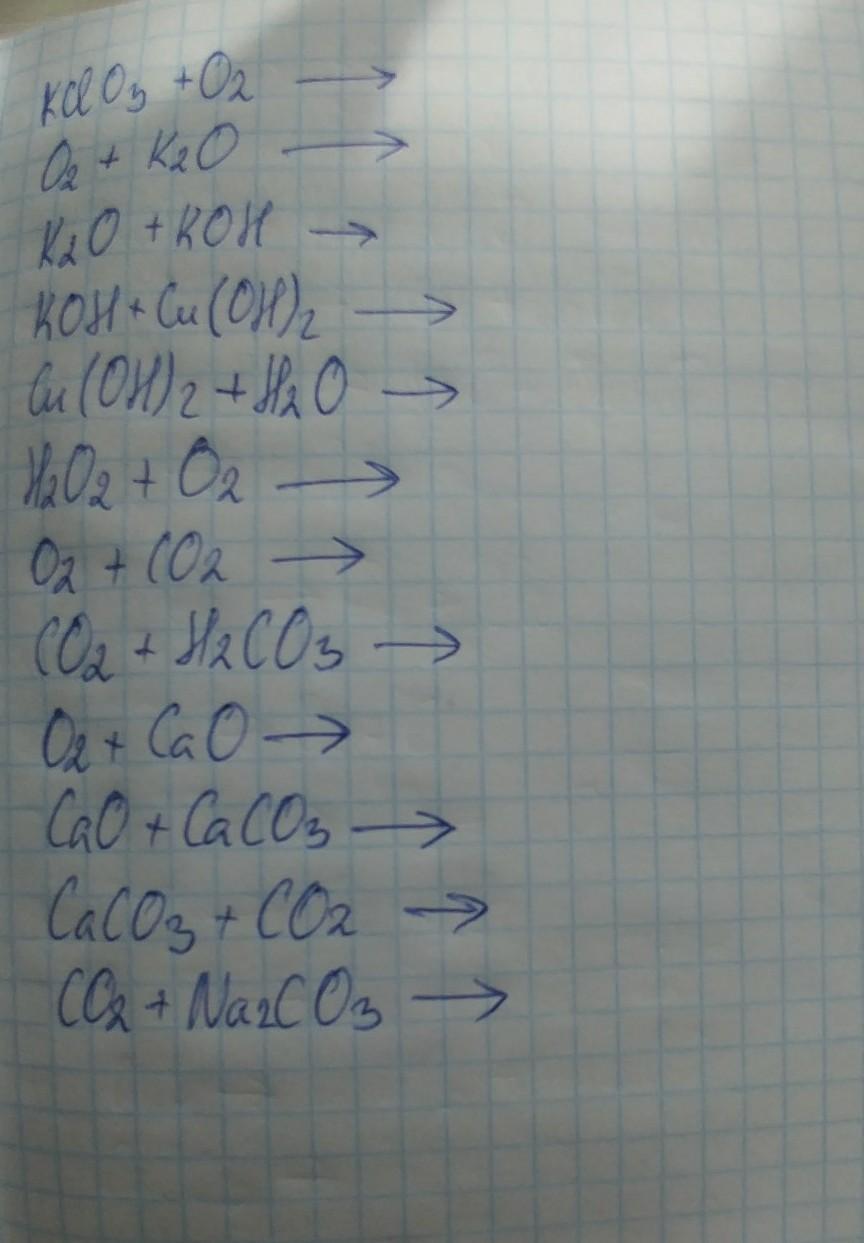 KClO3 + O2 →
O2 + K2O →
K2O + KOH →
KOH + Cu(OH)2 →
Cu(OH)2 + H2O →
H2O2 + O2 →
O2 + CO2 →
CO2 + H2CO3 →
O2 + CaO →
CaO + CaCO3 →
CaCO3 + CO2 →
CO2 + Na2CO3 →